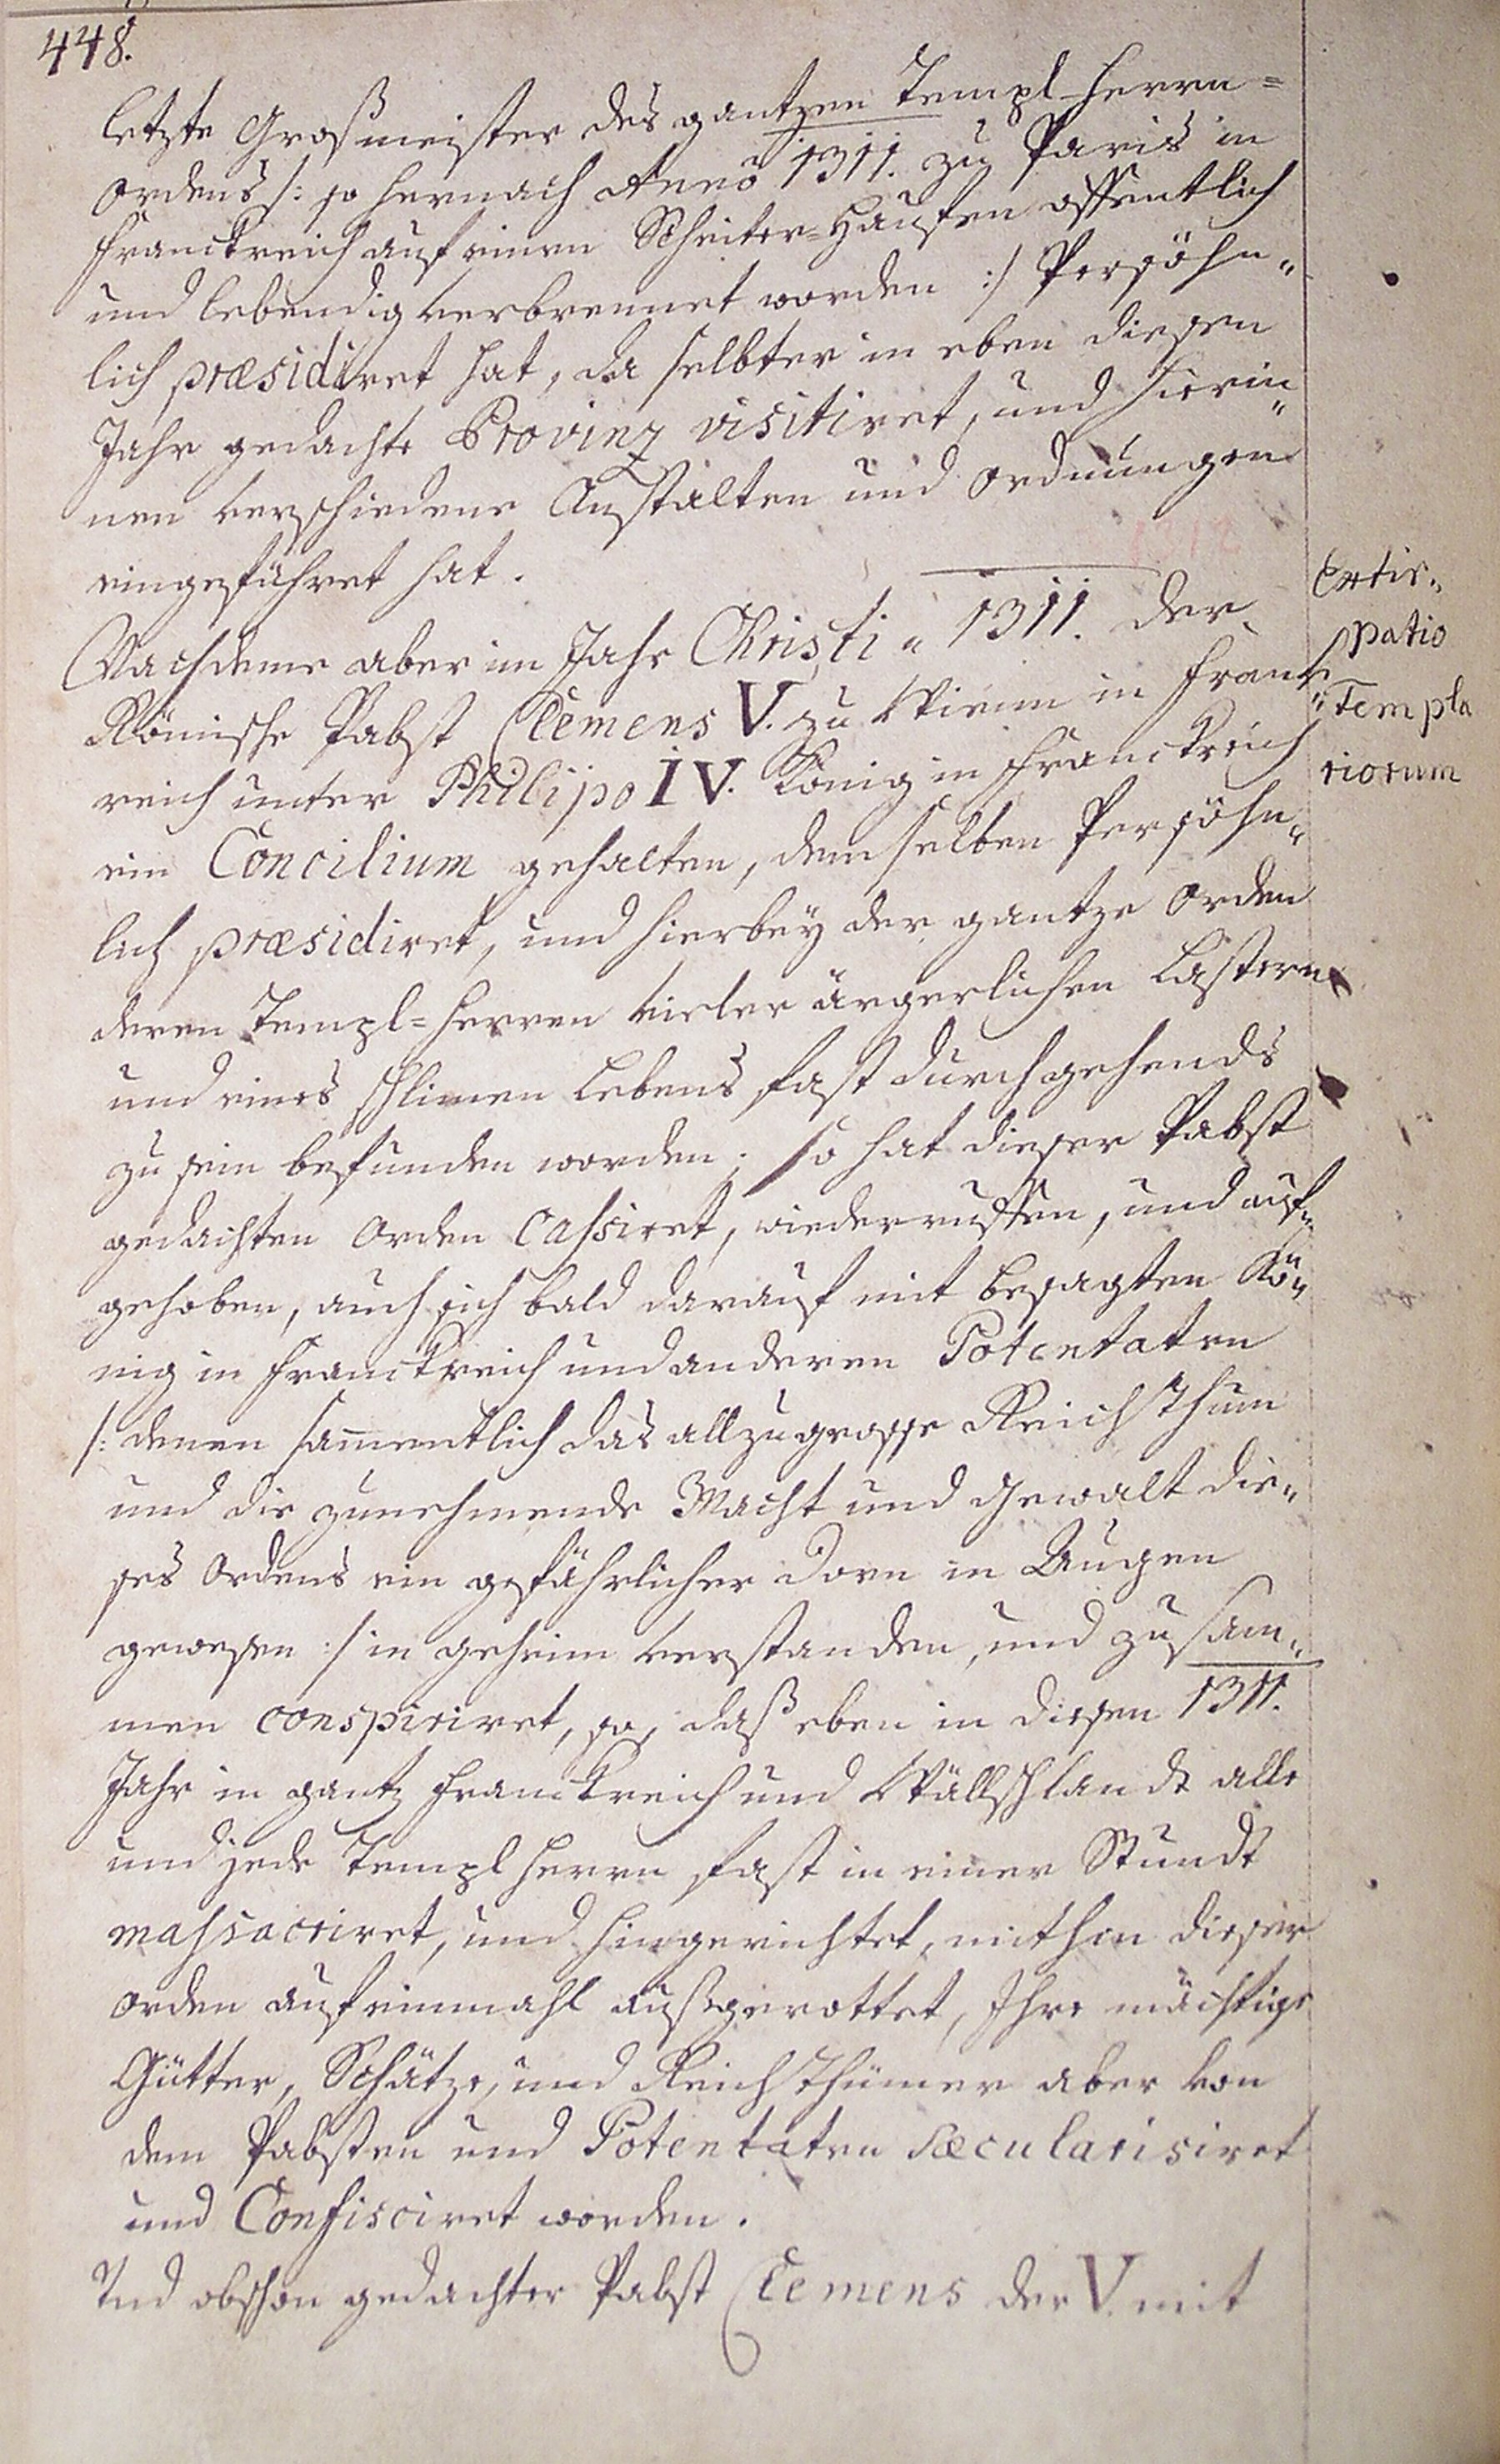 448.
letzte Großmeister des gantzen Templ-Herrn=
Ordens /: so hernach Anno 1311. zu Paris in
Franckreich auf einen Scheiter=Hauffen offentlich
und lebendig verbrennet worden :/ Persöhn„
lich præsidiret hat, da selbter in eben diesen
Jahr gedachte Provinz visitiret, und hierin„
nen verschiedene Anstalten und Ordnungen
eingeführet hat.
1312
Nachdeme aber im Jahr Christi „ 1311. der
Römische Pabst Clemens V. zu Vienn in Franck„
reich unter Philipo IV. König in Franckreich
ein Concilium gehalten, demselben Persöhn„
lich præsidiret, und hierbey der gantze Orden
deren Templ=Herren vieler ärgerlichen Lastern
und eines schlimen Lebens fast durchgehends
zu sein befunden worden; so hat dieser Pabst
gedachten Orden Cassiret, wiederruffen, und auf„
gehoben, auch sich bald darauf mit besagten Kö„
nig in Franckreich und anderen Potentaten
/: denen sammentlich das allzugrosse Reichthum
und die zunehmende Macht und Gewalt die„
ses Ordens ein gefährlicher Dorn in Augen
gewesen :/ in geheim verstanden, und zusam„
men conspiriret, so, daß eben in diesen 1311.
Jahr in gantz Franckreich und Wällschlandt alle
und jede Templ Herrn fast in einer Stundt
massacriret, und hingerichtet, mithin dieser
Orden auf einmahl außgerottet, Ihre mächtige
Gütter, Schätze, und Reichthümer aber von
dem Pabsten und Potentaten sæcularisiret
und Confisciret worden.
Und obschon gedachter Pabst Clemens der V. mit
Extir„
patio
Templa
riorum